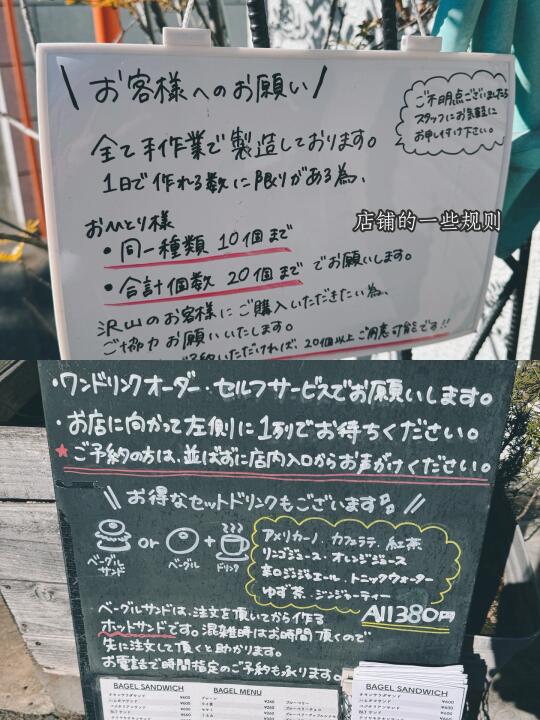 お客様へのお願い
ご不明点ございましたら
スタッフにお気軽に
お申し付け下さい。
全て手作業で製造しております。
1日で作れる数に限りがある為、
おひとり様
店铺的一些规则
・同一種類 10個まで
・合計個数 20個まで でお願いします。
沢山のお客様にご購入いただきたい為、
ご協力お願いいたします。
いただければ、20個以上ご用意可能です!!
・ワンドリンクオーダー・セルフサービスでお願いします。
・お店に向かって左側に1列でお待ちください。
★ご予約の方は、並ばずに店内入口からお声がけください。
お得なセットドリンクもございます
ベーグルサンド or ベーグル + ドリンク
アメリカーノ、カフェラテ、紅茶
リンゴジュース・オレンジジュース
辛口ジンジャエール、トニックウォーター
ゆず茶、ジンジャーティー
All 380円
ベーグルサンドは、注文を頂いてから作る
ホットサンドです。混雑時はお時間頂くので
先に注文して頂くと助かります。
お電話で時間指定のご予約も承ります。
BAGEL SANDWICH
BAGEL MENU
BAGEL SANDWICH